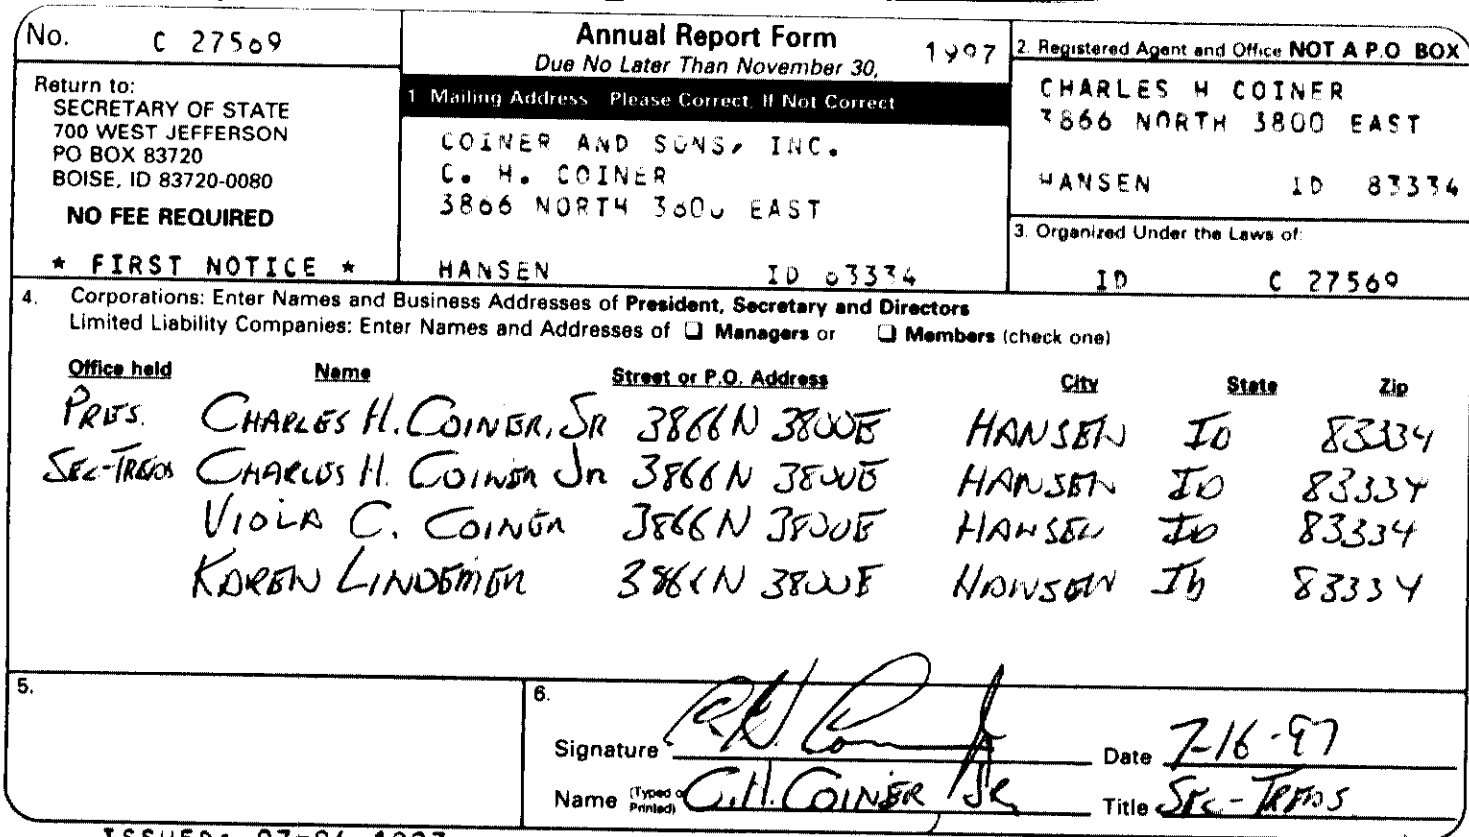 No. C 27569
Annual Report Form
Due No Later Than November 30, 1997
Return to:
SECRETARY OF STATE
700 WEST JEFFERSON
PO BOX 83720
BOISE, ID 83720-0080
NO FEE REQUIRED
* FIRST NOTICE *
1 Mailing Address Please Correct, If Not Correct
COINER AND SONS, INC.
C. H. COINER
3866 NORTH 3800 EAST
HANSEN ID 83334
2. Registered Agent and Office NOT A P.O BOX
CHARLES H COINER
3866 NORTH 3800 EAST
HANSEN ID 83334
3. Organized Under the Laws of:
ID C 27569
4. Corporations: Enter Names and Business Addresses of President, Secretary and Directors
Limited Liability Companies: Enter Names and Addresses of ❑ Managers or ❑ Members (check one)
Office held Name Street or P.O. Address City State Zip
PRES. CHARLES H. COINER, SR 3866 N 3800E HANSEN ID 83334
SEC-TREAS CHARLES H. COINER JR 3866 N 3800E HANSEN ID 83334
VIOLA C. COINER 3866 N 3800E HANSEN ID 83334
KAREN LINDEMER 3866 N 3800E HANSEN ID 83334
5.
6.
Signature C.H. Coiner Jr Date 7-16-97
Name (Typed or Printed) C.H. COINER JR Title SEC-TREAS